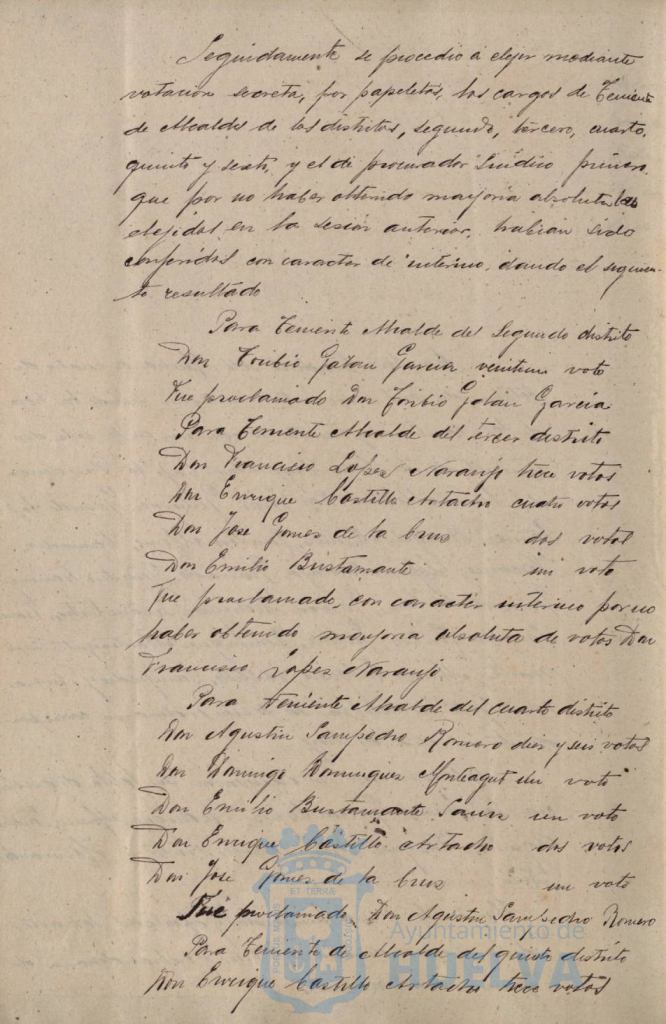 Seguidamente se procedió á elejir mediante
votacion secreta, por papeletas, los cargos de Teniente
de Alcaldes de los distritos, segundo, tercero, cuarto,
quinto y sexto, y el de procurador Sindico primero,
que por no haber obtenido mayoria absoluta los
elejidos en la sesion anterior, habian sido
conferidos con caracter de interino, dando el siguien-
te resultado
Para Teniente Alcalde del Segundo distrito
Don Toribio Galan Garcia veintiun voto
Fue proclamado Don Toribio Galán Garcia
Para Teniente Alcalde del tercer distrito
Don Francisco Lopez Naranjo trece votos
Don Enrique Castillo Artacho cuatro votos
Don Jose Gomez de la Cruz dos votos
Don Emilio Bustamante un voto
Fue proclamado, con caracter interino por no
haber obtenido mayoria absoluta de votos Don
Francisco Lopez Naranjo
Para teniente Alcalde del cuarto distrito
Don Agustin Sampedro Romero diez y seis votos
Don Domingo Dominguez Monteagut un voto
Don Emilio Bustamante un voto
Don Enrique Castillo Artacho dos votos
Don Jose Gomez de la Cruz un voto
Fue proclamado Don Agustin Sampedro Romero
Para Teniente de Alcalde del quinto distrito
Don Enrique Castillo Artacho trece votos
Ayuntamiento de
HUELVA